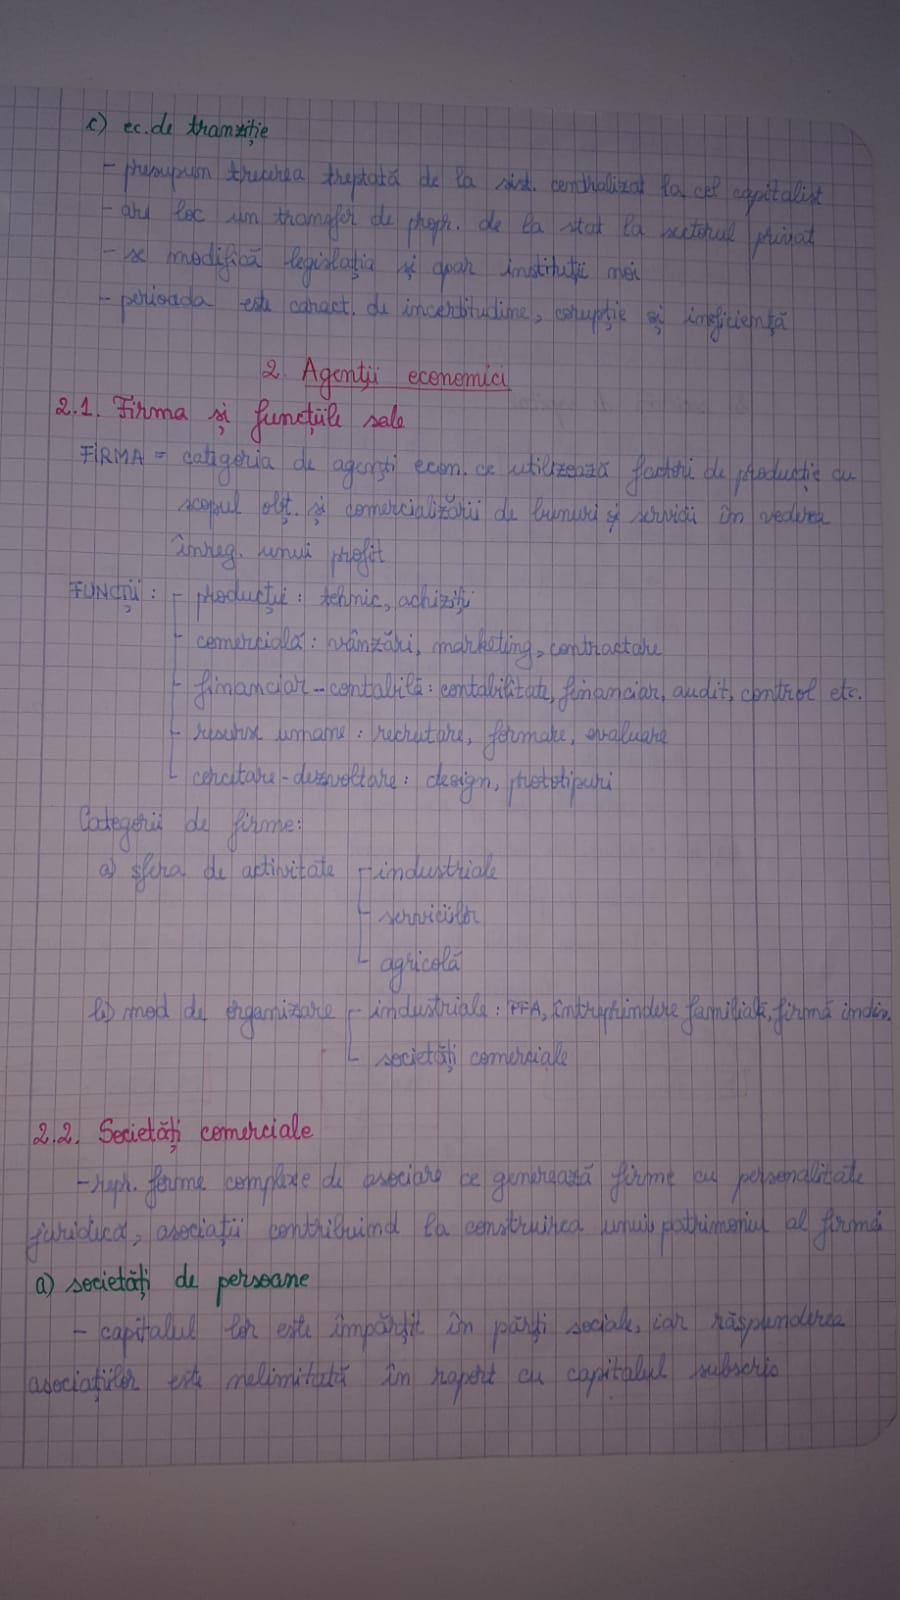 c) ec. de tranziție
- presupun trecerea treptată de la sist. centralizat la cel capitalist
- are loc un transfer de propr. de la stat la sectorul privat
- se modifică legislația și apar instituții noi
- perioada este caract. de incertitudine, corupție și ineficiență
2. Agenții economici
2.1. Firma și funcțiile sale
FIRMA = categoria de agenți econ. ce utilizează factori de producție cu
scopul obț. și comercializării de bunuri și servicii în vederea
înreg. unui profit
FUNCȚII: - producție: tehnic, achiziții
- comercială: vânzări, marketing, contractare
- financiar-contabilă: contabilitate, financiar, audit, control etc.
- resurse umane: recrutare, formare, evaluare
- cercetare-dezvoltare: design, prototipuri
Categorii de firme:
a) sfera de activitate - industriale
- serviciilor
- agricolă
b) mod de organizare - industriale: PFA, întreprindere familială, firmă indiv.
- societăți comerciale
2.2. Societăți comerciale
- repr. forme complexe de asociare ce generează firme cu personalitate
juridică, asociații contribuind la construirea unui patrimoniu al firmei
a) societăți de persoane
- capitalul lor este împărțit în părți sociale, iar răspunderea
asociaților este nelimitată în raport cu capitalul subscris